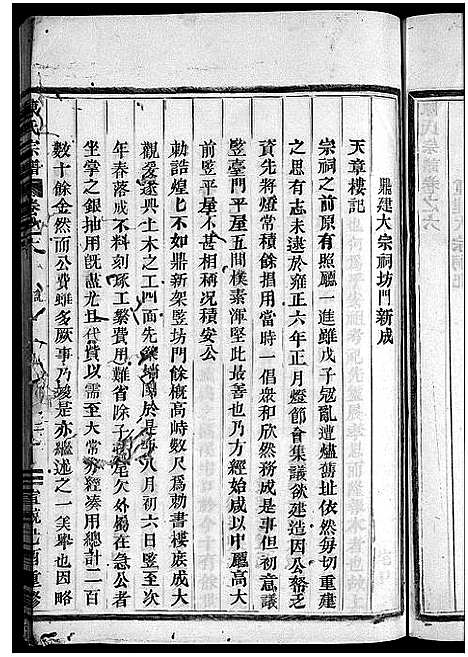 鼎建大宗祠坊門新成
天章樓記
宗祠之前原有照廳一進雖戊子冠亂遭燼舊址依然每切重建
之思有志未逮於雍正六年正月燈節會集議欲建造因公帑乏
資先將燈常積餘捐用當時一倡衆和欣然務成是事但初意議
竪臺門平屋五間樸素渾堅此最善也乃方經始咸以中廳高大
前竪平屋不甚相稱况積安公
勅誥煌匕不如鼎新架竪坊門餘概高峙數尺爲勅書樓庶成大
觀爰遂興土木之工門面先 於是 八月初六日竪立次
年春落成不料刻琢工繁費用難省除子 是欠外觸在急公者
坐掌之銀抽用旣盡尤且代貸以需至大常亦經凑用總計二百
數十餘金然而公費雖多厥事乃竣是亦繼述之一美舉也因略
氏宗譜
宣統 酉重修
氏宗譜卷之六
重建大宗祠記